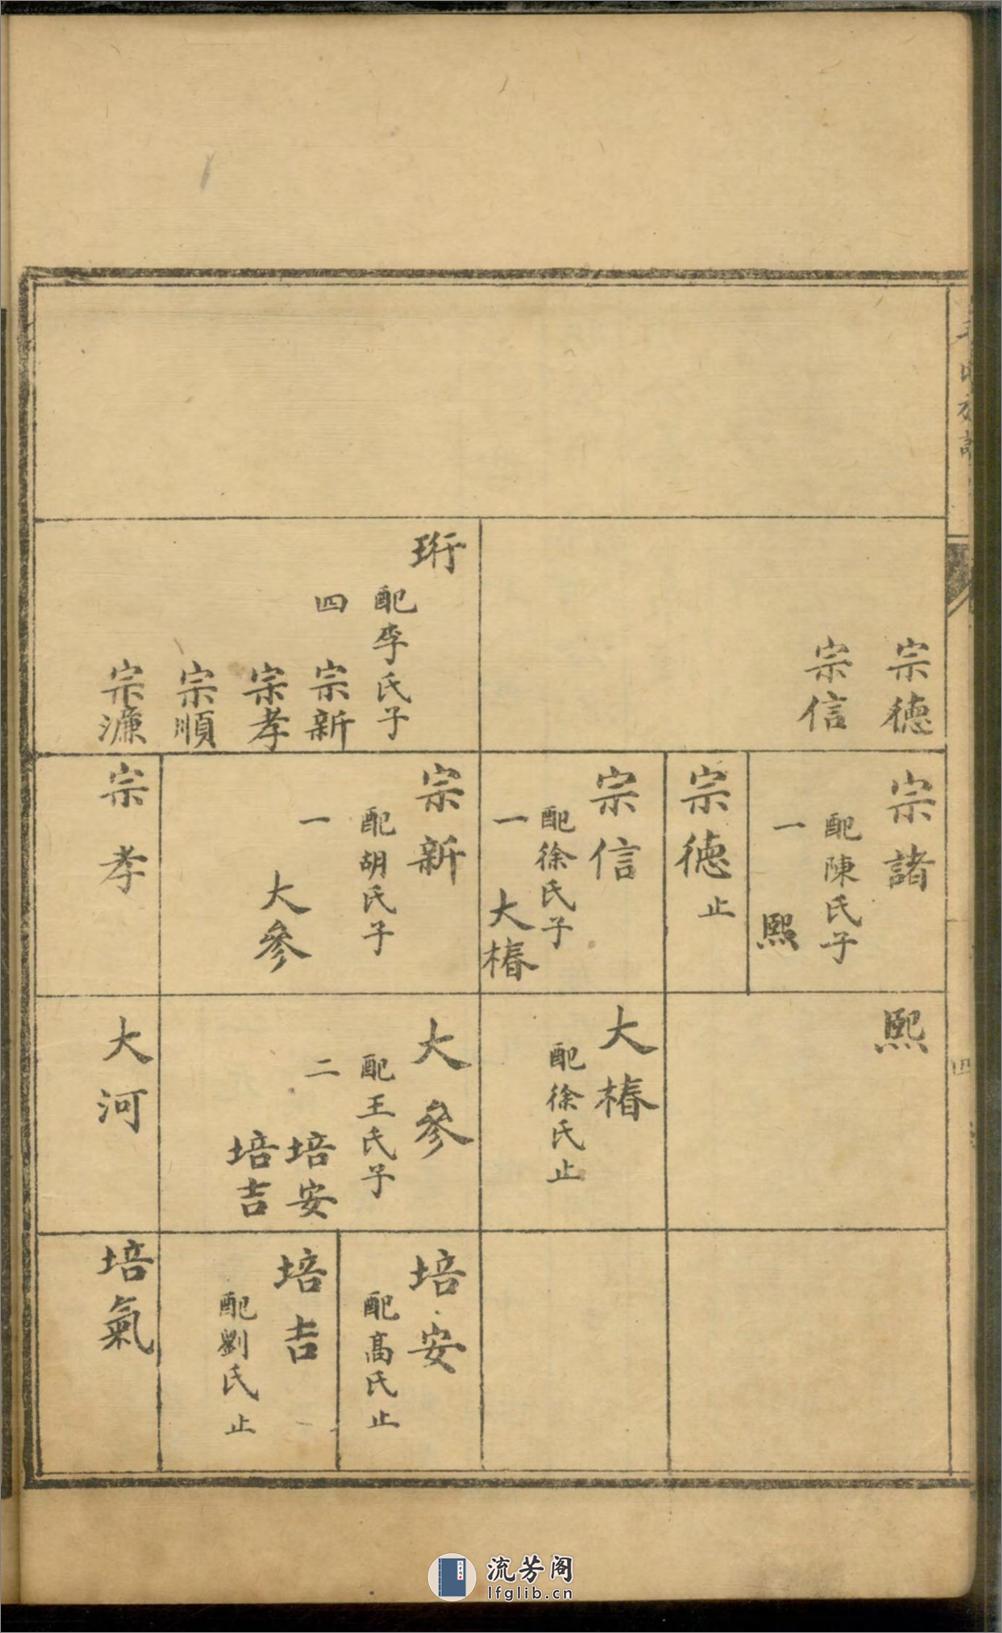 宗德
宗信
珩
配李氏子
四
宗新
宗孝
宗順
宗濂
宗諸
配陳氏子
一
熙
宗德
止
宗信
配徐氏子
一
大椿
宗新
配胡氏子
一
大參
宗孝
熙
大椿
配徐氏止
大參
配王氏子
二
培安
培吉
大河
培安
配高氏止
培吉
配劉氏止
培氣
四
流芳阁
lfglib.cn